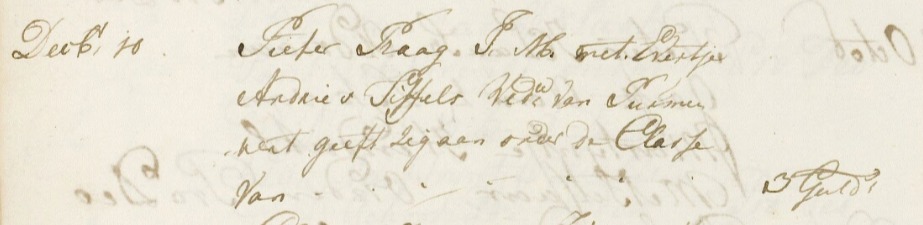 Decbr 10. Pieter Kraag. J. M. met. Evertje
Andries Siffels Wedw Van Purmer
rent geeft zig aan onder de Classe
Van - - - - 3 Guld.